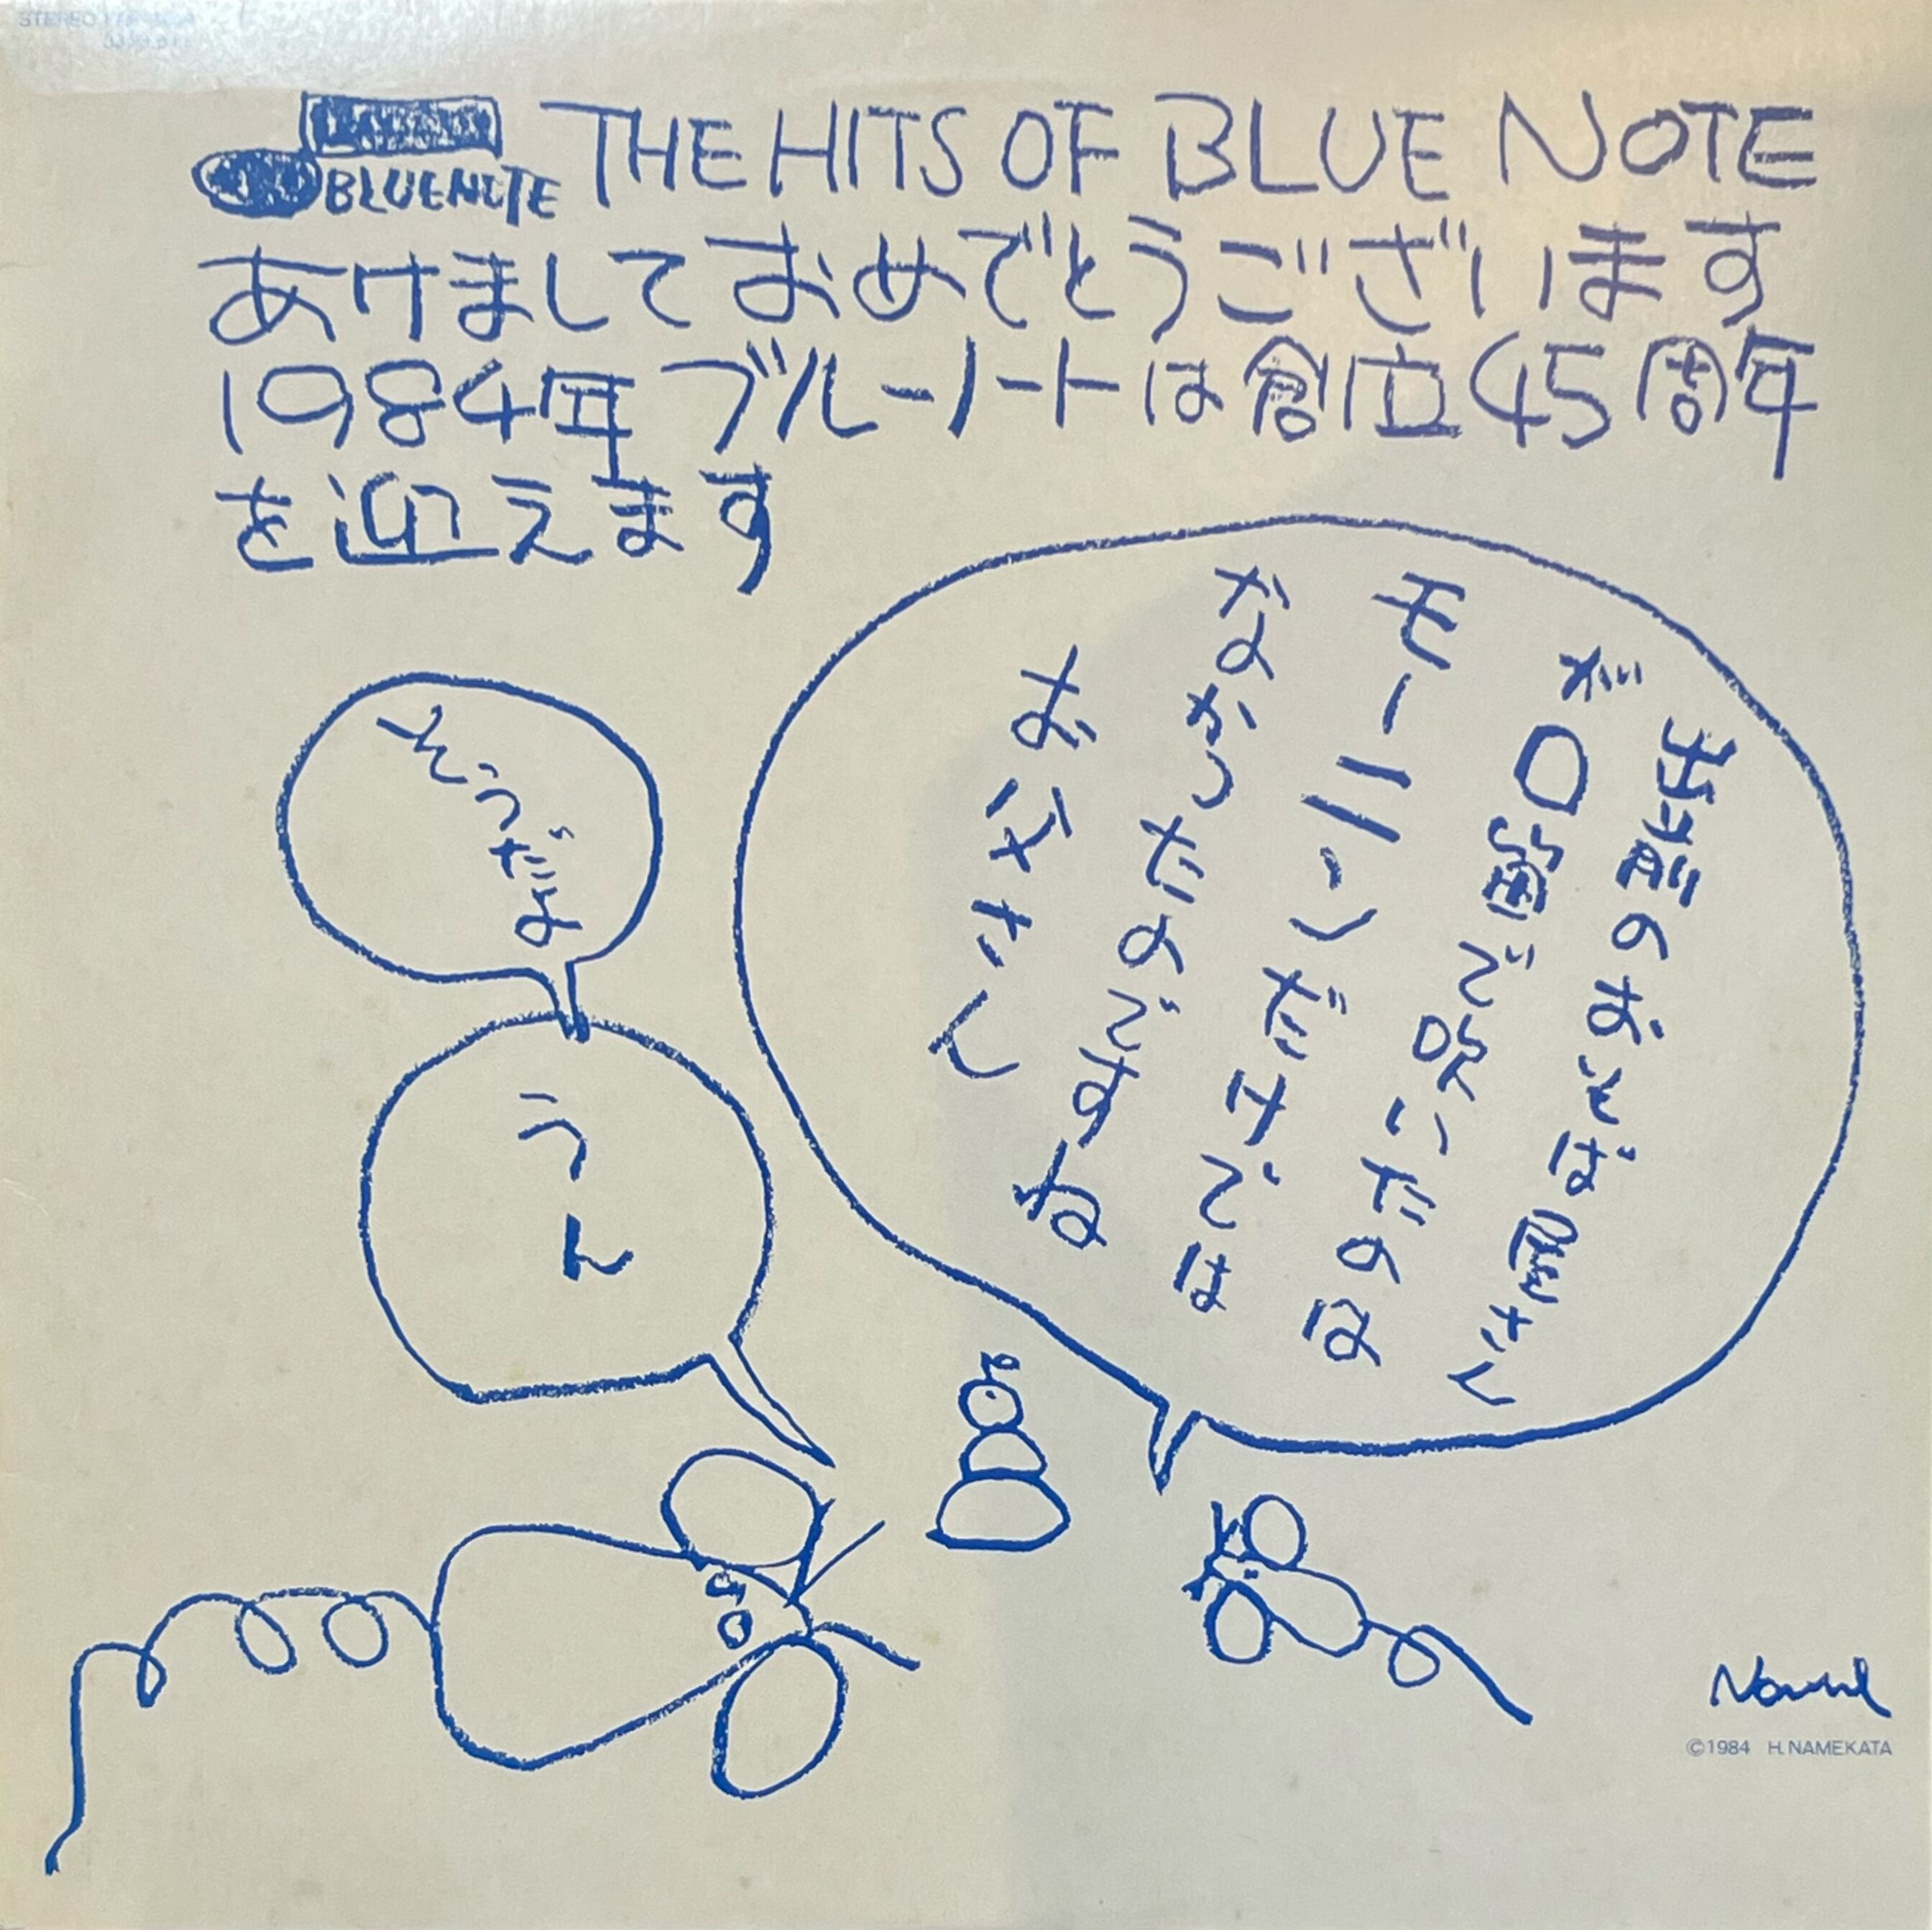 STEREO
BLUENOTE THE HITS OF BLUE NOTE
あけましておめでとうございます
1984年ブルーノートは創立45周年
を迎えます
出前のおそば屋さん
が口笛で吹いたのは
モーニンだけでは
なかったのですね
お父さん
そうだよ
うん
Nanuel
©1984 H.NAMEKATA